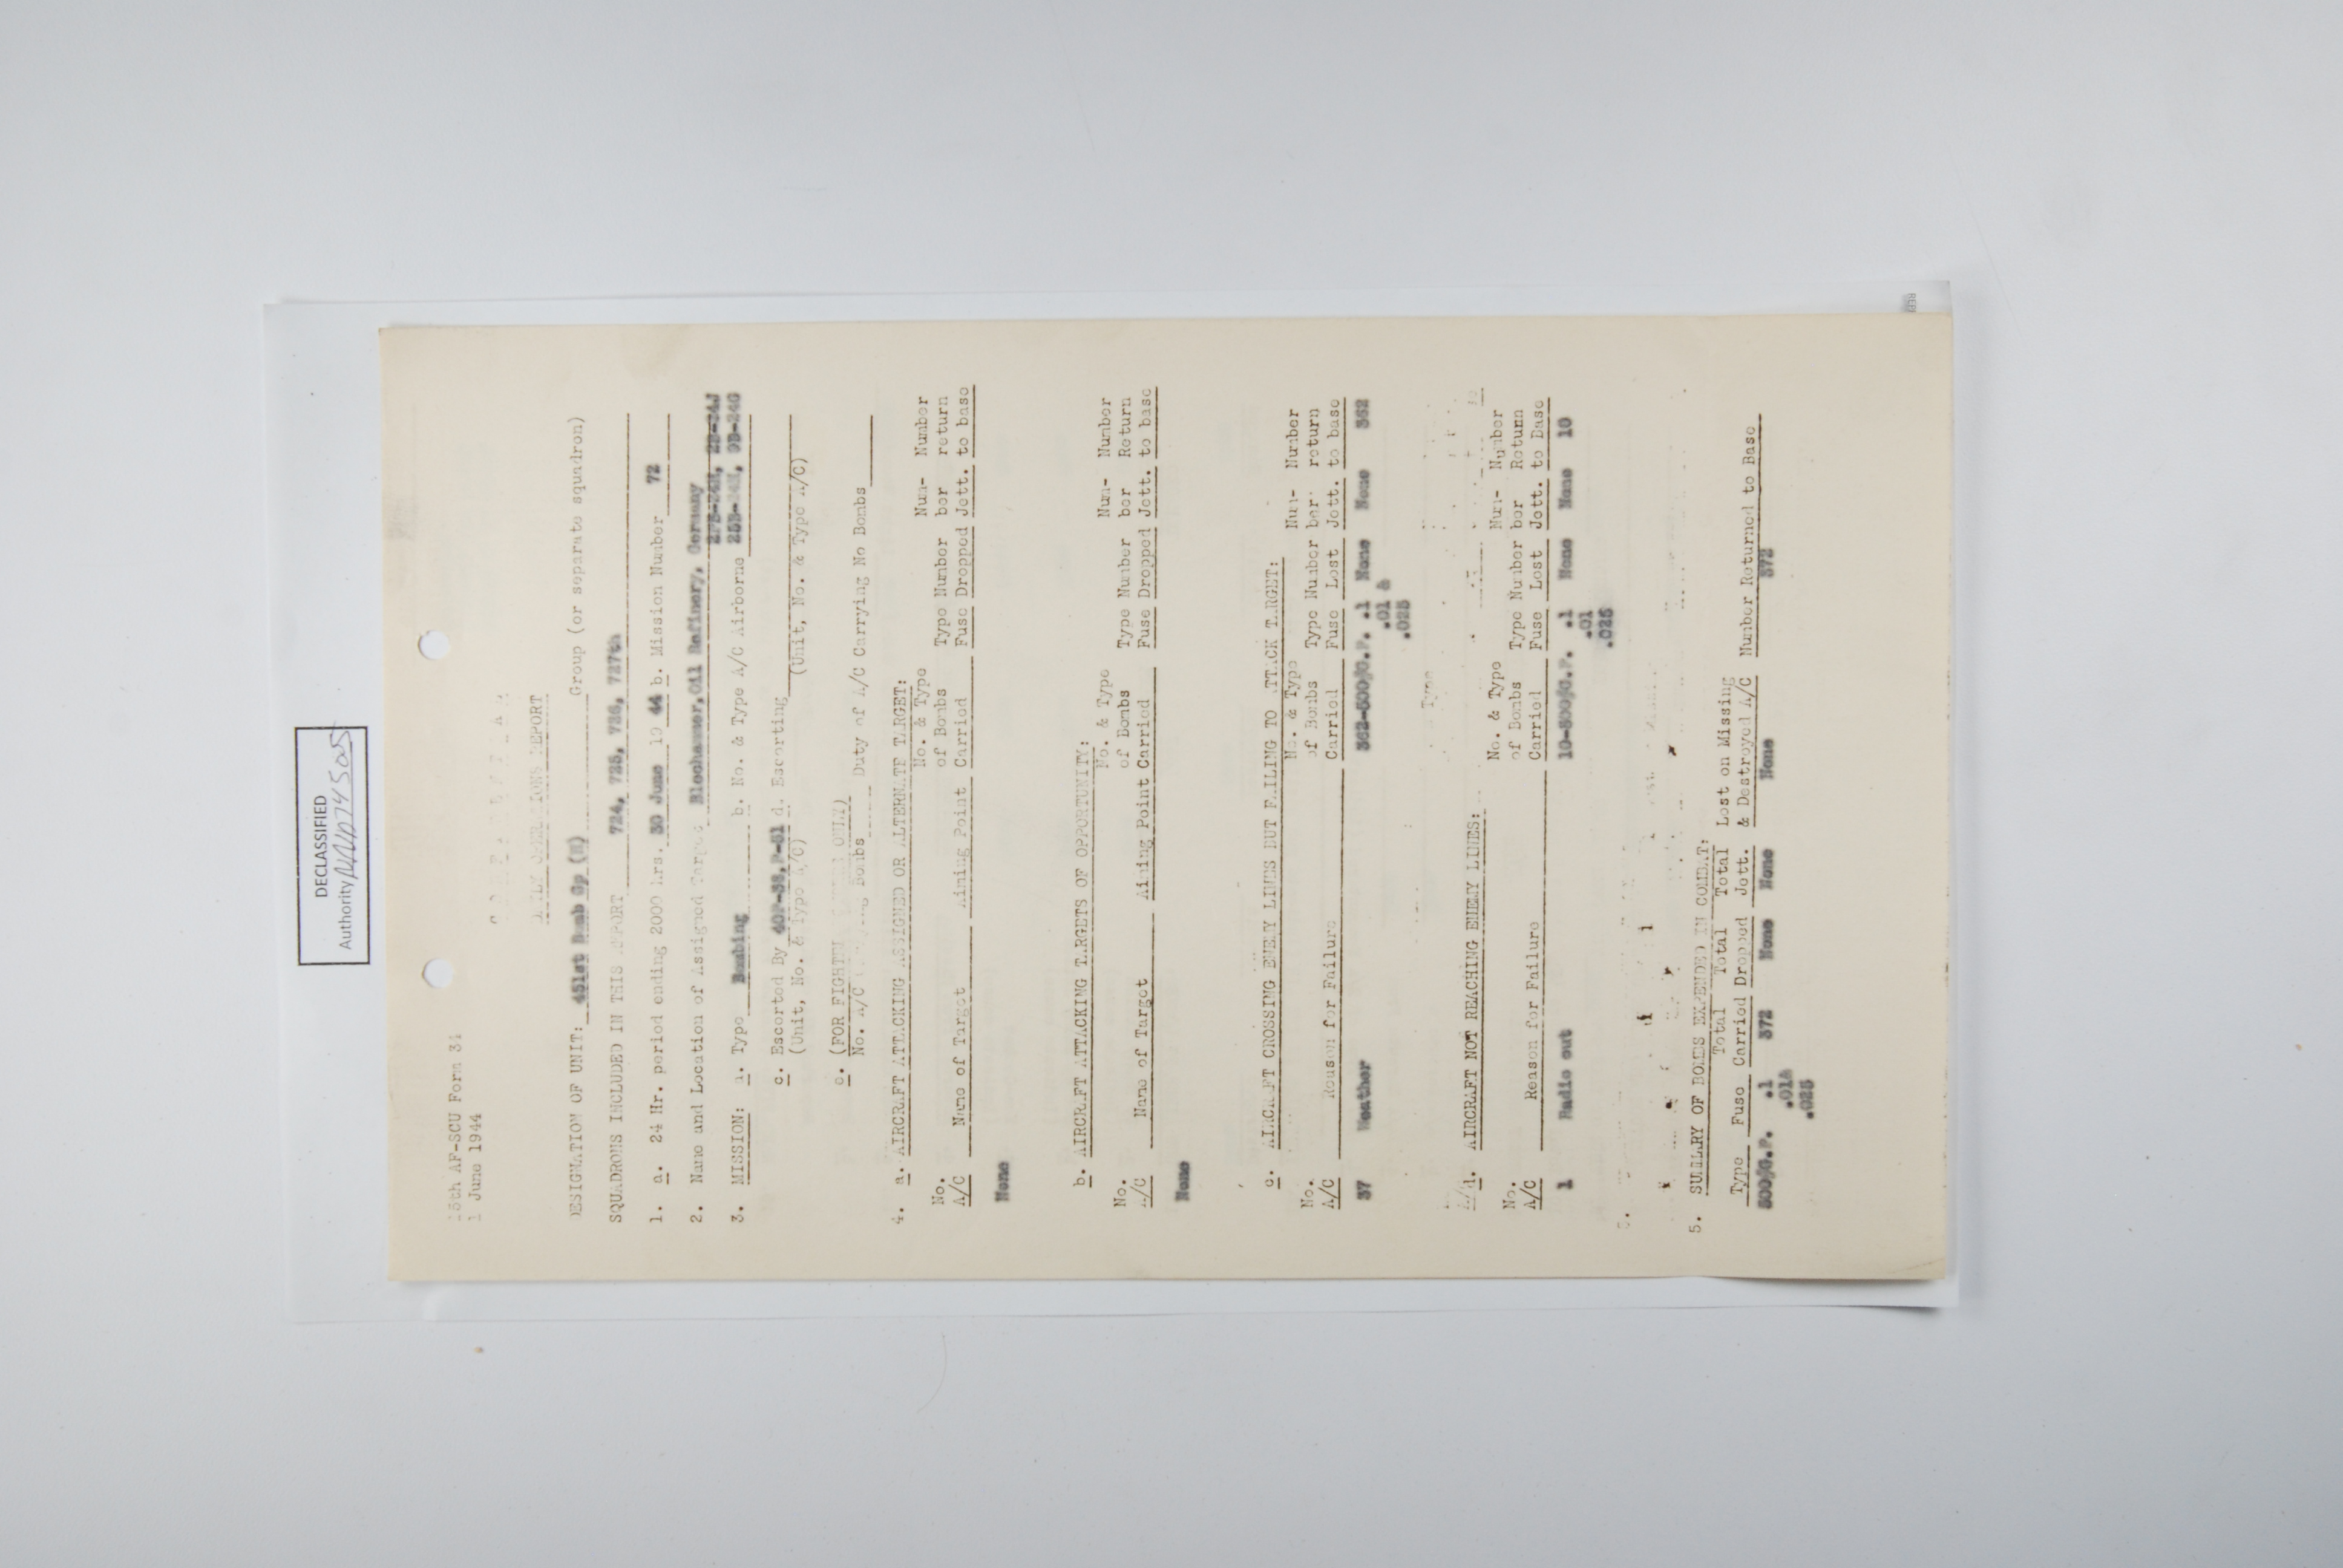 DECLASSIFIED
Authority
15th AF-SCU Form 34
1 June 1944
DAILY OPERATIONS REPORT
DESIGNATION OF UNIT: 451st Bomb Gp (H) Group (or separate squadron)
SQUADRONS INCLUDED IN THIS REPORT 724, 725, 726, 727th
1. a. 24 Hr. period ending 2000 hrs. 30 June 19 44 b. Mission Number 72
2. Name and Location of Assigned Target Blechhammer, Oil Refinery, Germany
3. MISSION: a. Type Bombing b. No. & Type A/C Airborne 25B-24H, 9B-24G
c. Escorted By 40P-38, P-51 d. Escorting
(Unit, No. & Type A/C) (Unit, No. & Type A/C)
e. (FOR FIGHTER ONLY)
No. A/C Bombs Duty of A/C Carrying No Bombs
4. a. AIRCRAFT ATTACKING ASSIGNED OR ALTERNATE TARGET:
No. & Type Num- Number
No. of Bombs Type Number ber return
A/C Name of Target Aiming Point Carried Fuse Dropped Jett. to base
None
b. AIRCRAFT ATTACKING TARGETS OF OPPORTUNITY:
No. & Type Num- Number
No. of Bombs Type Number ber Return
A/C Name of Target Aiming Point Carried Fuse Dropped Jett. to base
None
c. AIRCRAFT CROSSING ENEMY LINES BUT FAILING TO ATTACK TARGET:
No. & Type Num- Number
No. of Bombs Type Number ber return
A/C Reason for Failure Carried Fuse Lost Jett. to base
37 Weather 362-500#G.P. .1 None None 362
.01 &
.025
Type
d. AIRCRAFT NOT REACHING ENEMY LINES:
No. & Type Num- Number
No. of Bombs Type Number ber Return
A/C Reason for Failure Carried Fuse Lost Jett. to Base
1 Radio out 10-500#G.P. .1 None None 10
.01
.025
5. SUMMARY OF BOMBS EXPENDED IN COMBAT:
Total Total Total Lost on Missing
Type Fuse Carried Dropped Jett. & Destroyed A/C Number Returned to Base
500#G.P. .1 372 None None None 372
.01&
.025